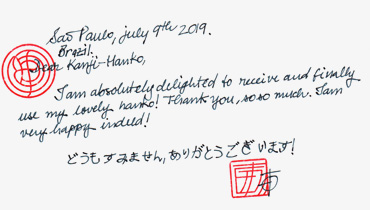 São Paulo, july 9th 2019.
Brazil.
Dear Kanji-Hanko,
I am absolutely delighted to receive and finally
use my lovely hanko! Thank you, so so much. I am
very happy indeed!
どうもすみません，ありがとうございます！